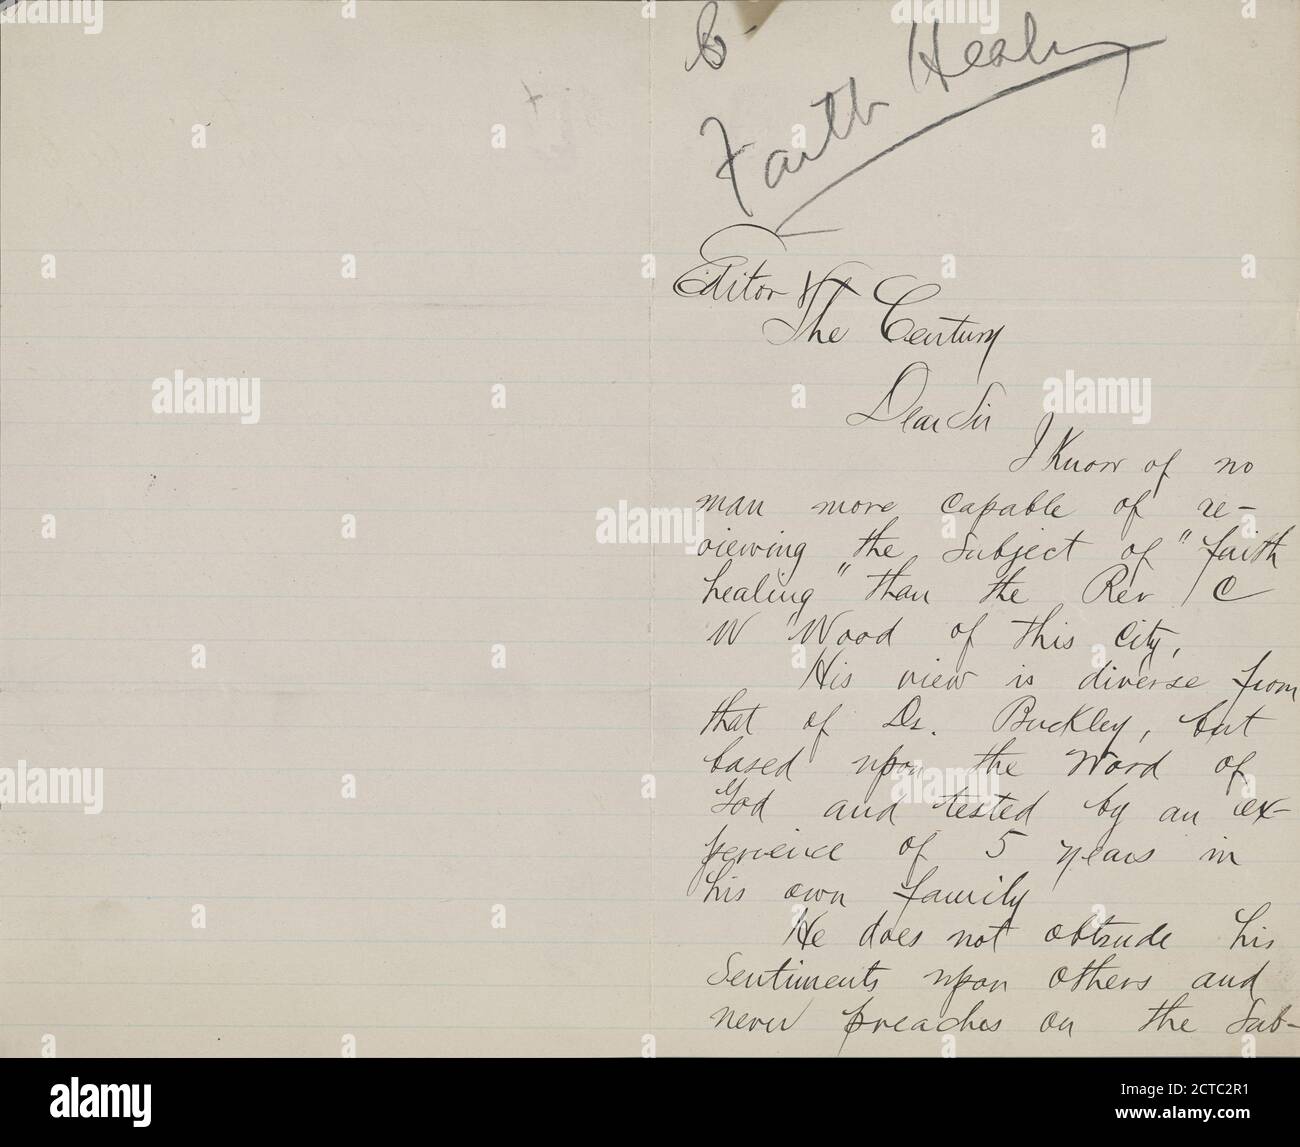 Faith Healing
Editor
The Century
Dear Sir
I Know of no
man more capable of re-
viewing the subject of "faith
healing" than the Rev C
W Wood of this City,
His view is diverse from
that of Dr. Buckley, but
based upon the Word of
God and tested by an ex-
perience of 5 years in
his own family
He does not obtrude his
Sentiments upon others and
never preaches on the Sub-
alamy
Image ID: 2CTC2R1
www.alamy.com